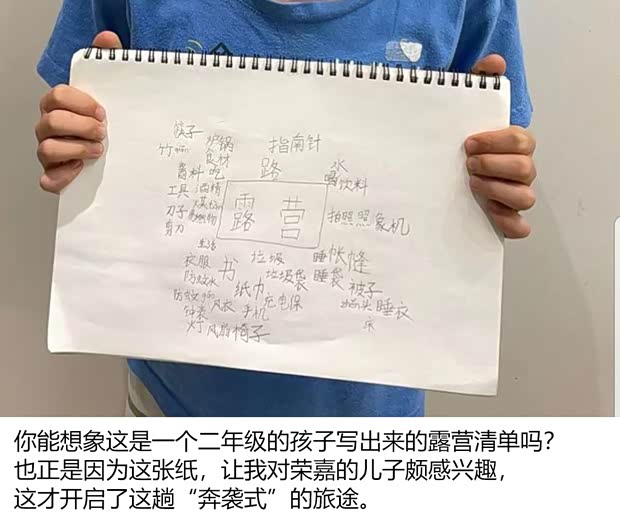 筷子
炉锅
指南针
竹qiān
食材
路
水
酱料
吃
喝
饮料
工具
酒精
露营
拍照
照象机
刀子
燃物
剪刀
生活
衣服
书
垃圾
睡
帐
防蚊水
垃圾袋
睡袋
纸巾
被子
防蚊
风衣
充电保
枕头
睡衣
钟表
手机
床
灯
风扇
椅子
你能想象这是一个二年级的孩子写出来的露营清单吗？
也正是因为这张纸，让我对荣嘉的儿子颇感兴趣，
这才开启了这趟“奔袭式”的旅途。